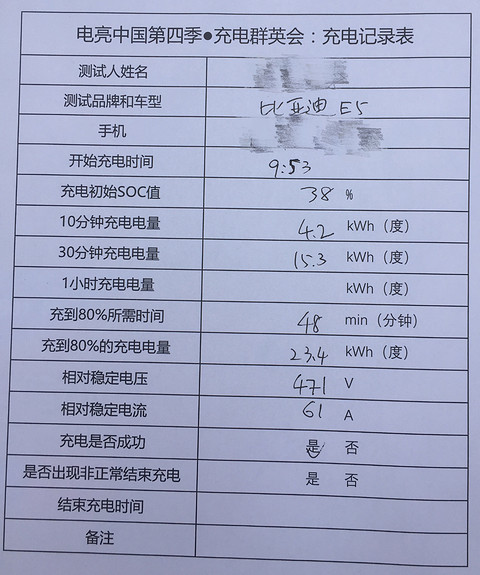 电亮中国第四季●充电群英会：充电记录表
测试人姓名
测试品牌和车型 比亚迪 E5
手机
开始充电时间 9:53
充电初始SOC值 38 %
10分钟充电电量 4.2 kWh（度）
30分钟充电电量 15.3 kWh（度）
1小时充电电量 kWh（度）
充到80%所需时间 48 min（分钟）
充到80%的充电电量 23.4 kWh（度）
相对稳定电压 471 V
相对稳定电流 61 A
充电是否成功 是 否
是否出现非正常结束充电 是 否
结束充电时间
备注